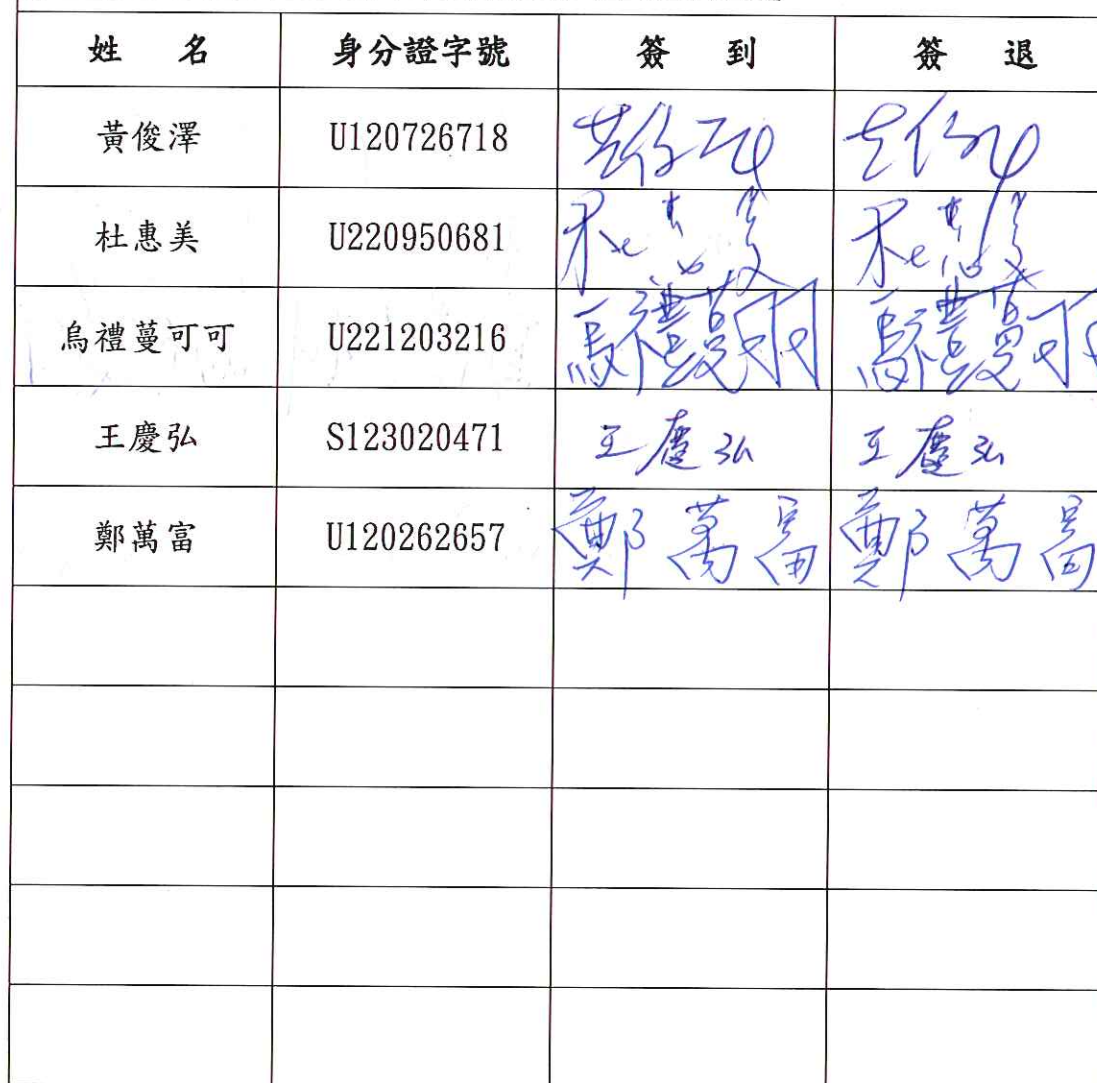 姓 名 身分證字號 簽 到 簽 退
黃俊澤 U120726718
杜惠美 U220950681 杜惠美 杜惠美
烏禮蔓可可 U221203216 烏禮蔓可可 烏禮蔓可
王慶弘 S123020471 王慶弘 王慶弘
鄭萬富 U120262657 鄭萬富 鄭萬富